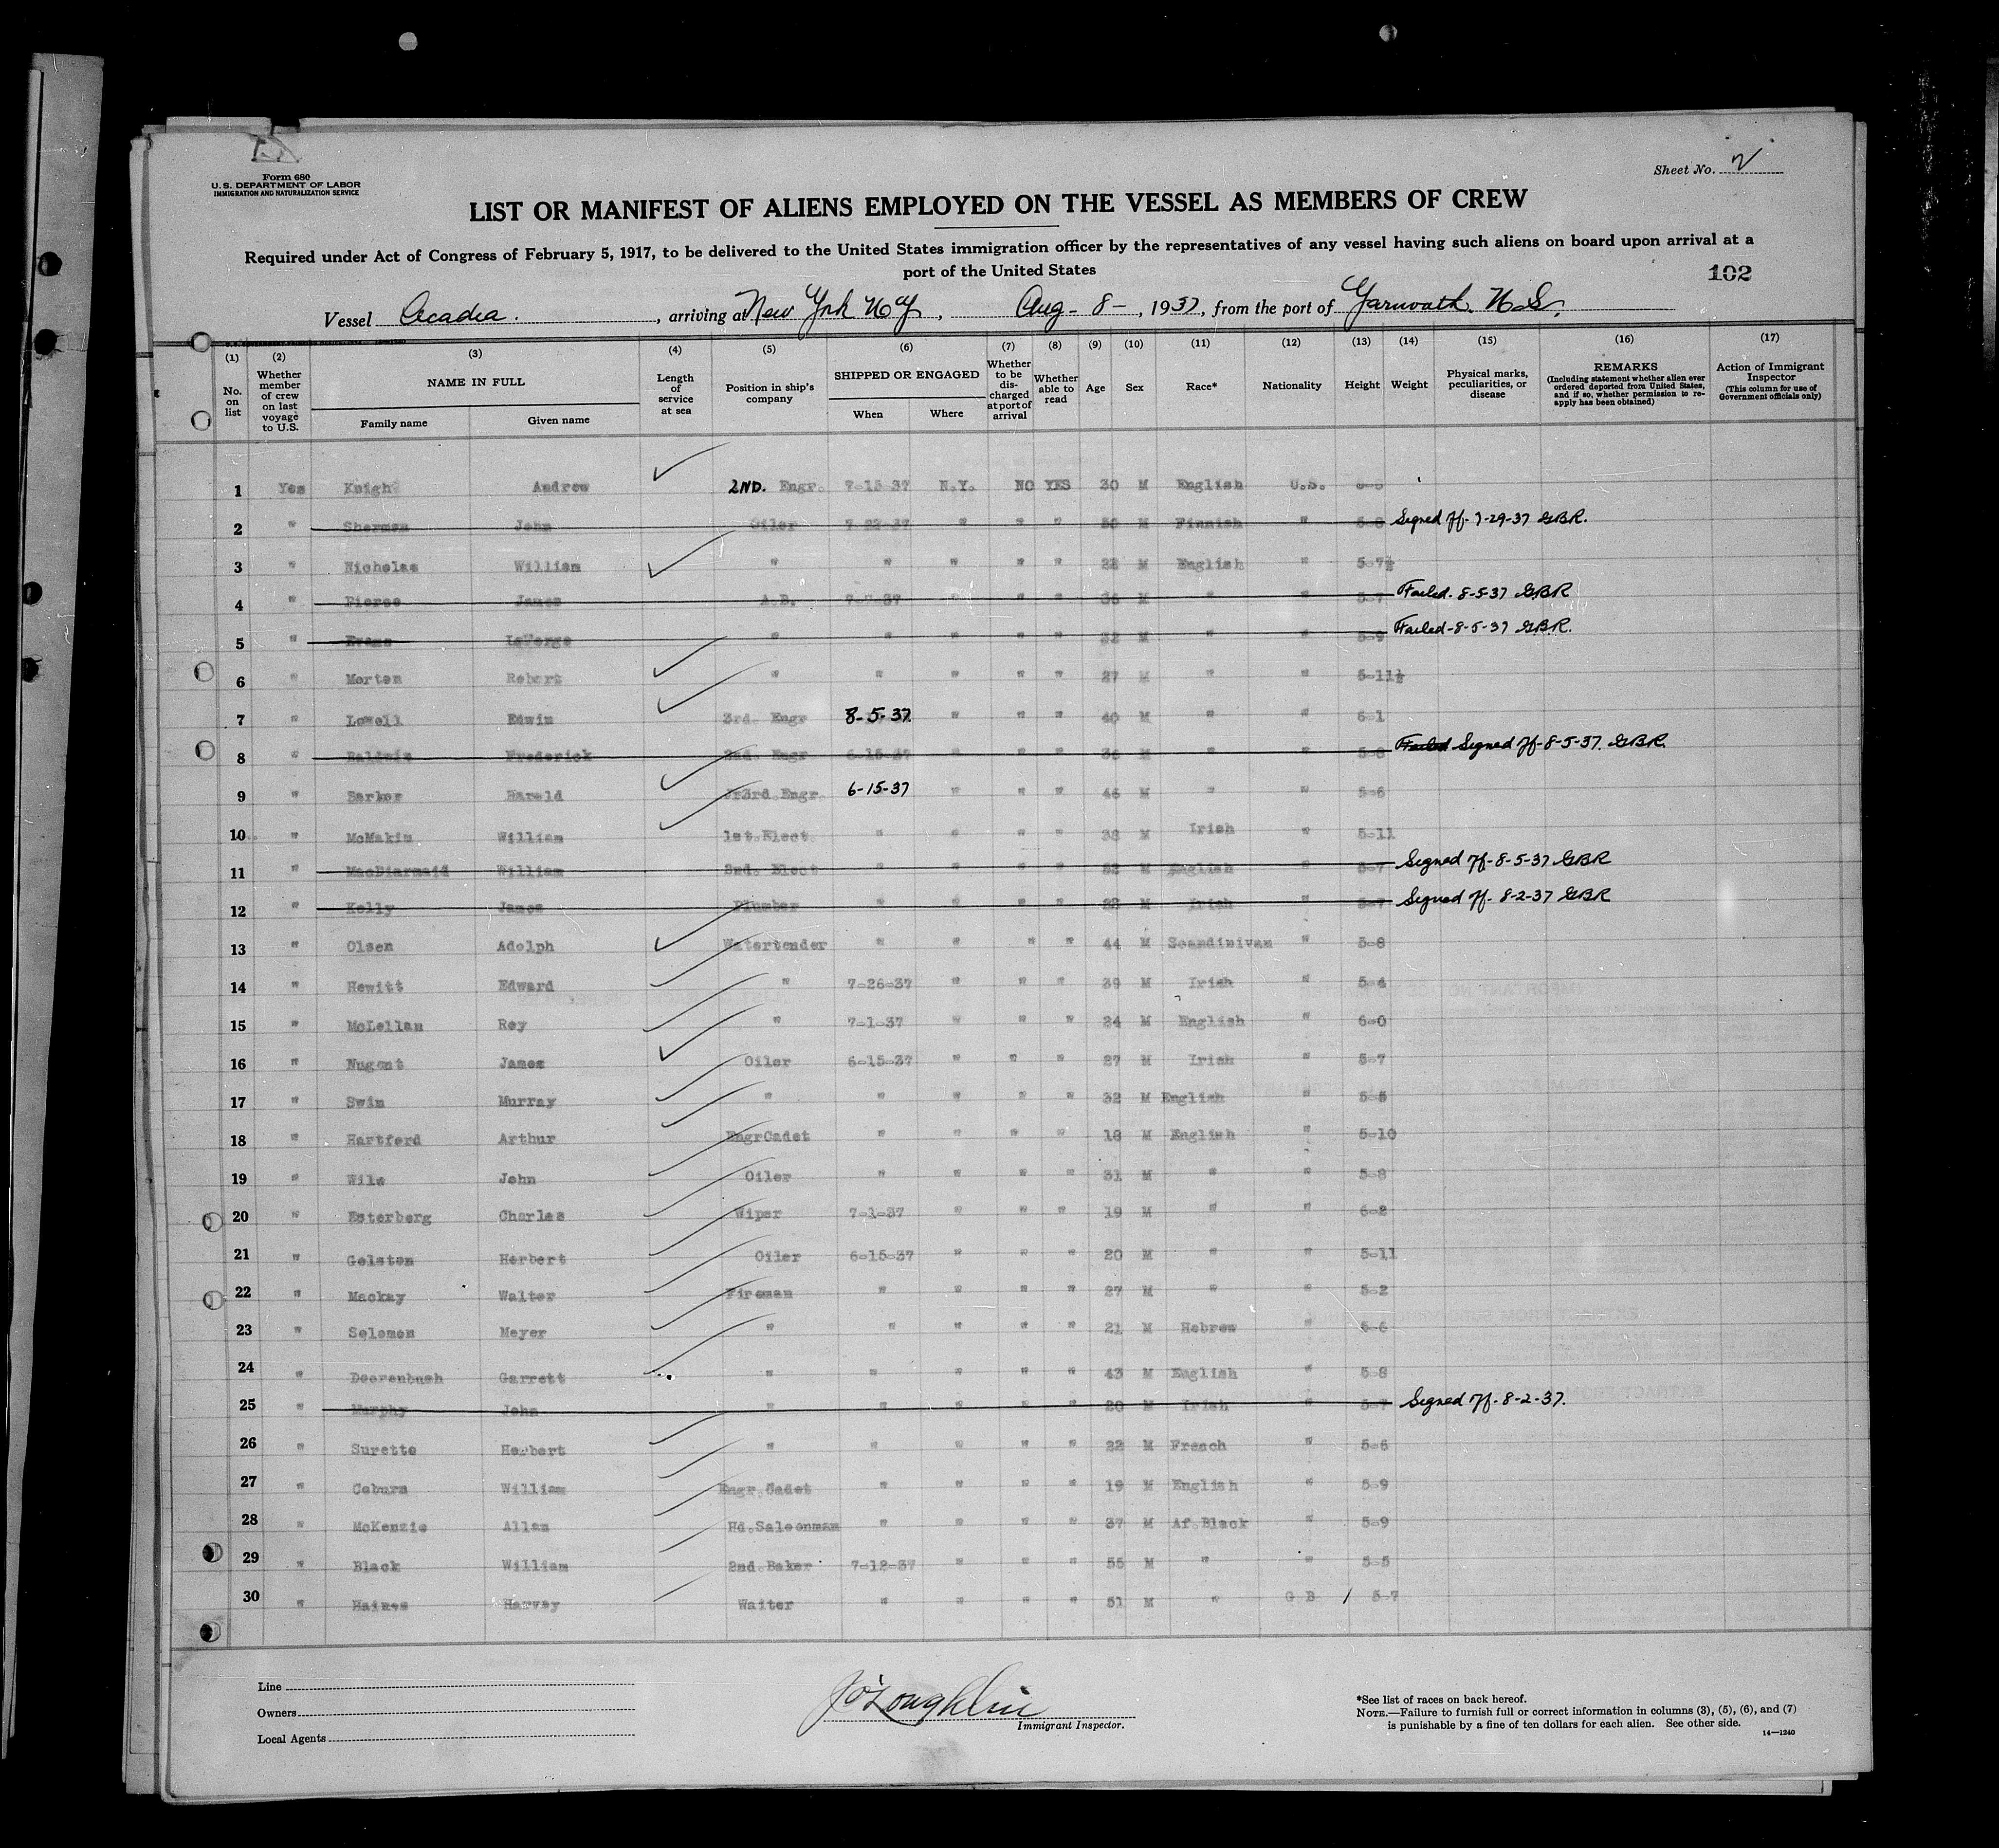 Form 680
U. S. DEPARTMENT OF LABOR
IMMIGRATION AND NATURALIZATION SERVICE
Sheet No. 2
LIST OR MANIFEST OF ALIENS EMPLOYED ON THE VESSEL AS MEMBERS OF CREW
Required under Act of Congress of February 5, 1917, to be delivered to the United States immigration officer by the representatives of any vessel having such aliens on board upon arrival at a
port of the United States
102
Vessel Acadia. , arriving at New York N Y , Aug - 8 - , 1937, from the port of Yarmouth. N.S.
(1) (2) (3) (4) (5) (6) (7) (8) (9) (10) (11) (12) (13) (14) (15) (16) (17)
No. on list Whether member of crew on last voyage to U.S. NAME IN FULL Family name Given name Length of service at sea Position in ship's company SHIPPED OR ENGAGED When Where Whether to be discharged at port of arrival Whether able to read Age Sex Race* Nationality Height Weight Physical marks, peculiarities, or disease REMARKS (Including statement whether alien ever ordered deported from United States, and if so, whether permission to reapply has been obtained) Action of Immigrant Inspector (This column for use of Government officials only)
1 Yes Knight Andrew 2ND. Engr. 7-15-37 N.Y. NO YES 30 M English U.S.
2 " Sherman John Oiler 7-22-37 " " " 50 M Finnish " 5-8 Signed off- 7-29-37 GBR.
3 " Nicholas William " " " " " 22 M English " 5-7½
4 " Pierce James A.B. 7-7-37 " " " 36 M " " 5-7 Failed. 8-5-37 GBR
5 " Evans LaForge " " " " " 32 M " " 5-9 Failed-8-5-37 G.B.R.
6 " Morten Robert " " " " " 27 M " " 5-11½
7 " Lowell Edwin 3rd. Engr 8-5-37 " " " 40 M " " 6-1
8 " Baldwin Frederick 2nd. Engr 6-15-37 " " " 36 M " " 5-8 Failed Signed off-8-5-37. GBR.
9 " Barker Harold Jr3rd.Engr. 6-15-37 " " " 46 M " " 5-6
10 " McMakin William 1st.Elect. " " " " 38 M Irish " 5-11
11 " MacDiarmaid William 2nd. Elect " " " " 52 M English " 5-7 Signed off-8-5-37 GBR
12 " Kelly James Plumber " " " " 23 M Irish " 5-7 Signed off- 8-2-37 GBR
13 " Olsen Adolph Watertender " " " " 44 M Scandinivan " 5-8
14 " Hewitt Edward " 7-26-37 " " " 39 M Irish " 5-4
15 " McLellan Roy " 7-1-37 " " " 24 M English " 6-0
16 " Nugent James Oiler 6-15-37 " " " 27 M Irish " 5-7
17 " Swim Murray " " " " " 32 M English " 5-5
18 " Hartford Arthur EngrCadet " " " " 18 M English " 5-10
19 " Wile John Oiler " " " " 31 M " " 5-8
20 " Esterberg Charles Wiper 7-1-37 " " " 19 M " " 6-2
21 " Gelston Herbert Oiler 6-15-37 " " " 20 M " " 5-11
22 " Mackay Walter Fireman " " " " 27 M " " 5-2
23 " Solomon Meyer " " " " " 21 M Hebrew " 5-6
24 " Doorenbush Garrett " " " " " 43 M English " 5-8
25 " Murphy John " " " " " 20 M Irish " 5-7 Signed off-8-2-37.
26 " Surette Herbert " " " " " 22 M French " 5-6
27 " Coburn William Engr.Cadet " " " " 19 M English " 5-9
28 " McKenzie Allan Hd.Saloonman " " " " 37 M Af.Black " 5-9
29 " Black William 2nd.Baker 7-12-37 " " " 55 M " " 5-5
30 " Haines Harvey Waiter " " " " 51 M " G B / 5-7
Line
Owners
Local Agents
J O'Loughlin
Immigrant Inspector.
*See list of races on back hereof.
NOTE.—Failure to furnish full or correct information in columns (3), (5), (6), and (7)
is punishable by a fine of ten dollars for each alien. See other side.
14—1240